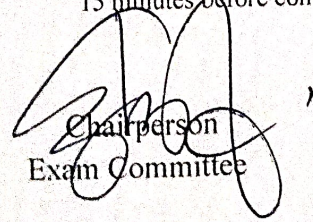 15 minutes before com
Chairperson
Exam Committee